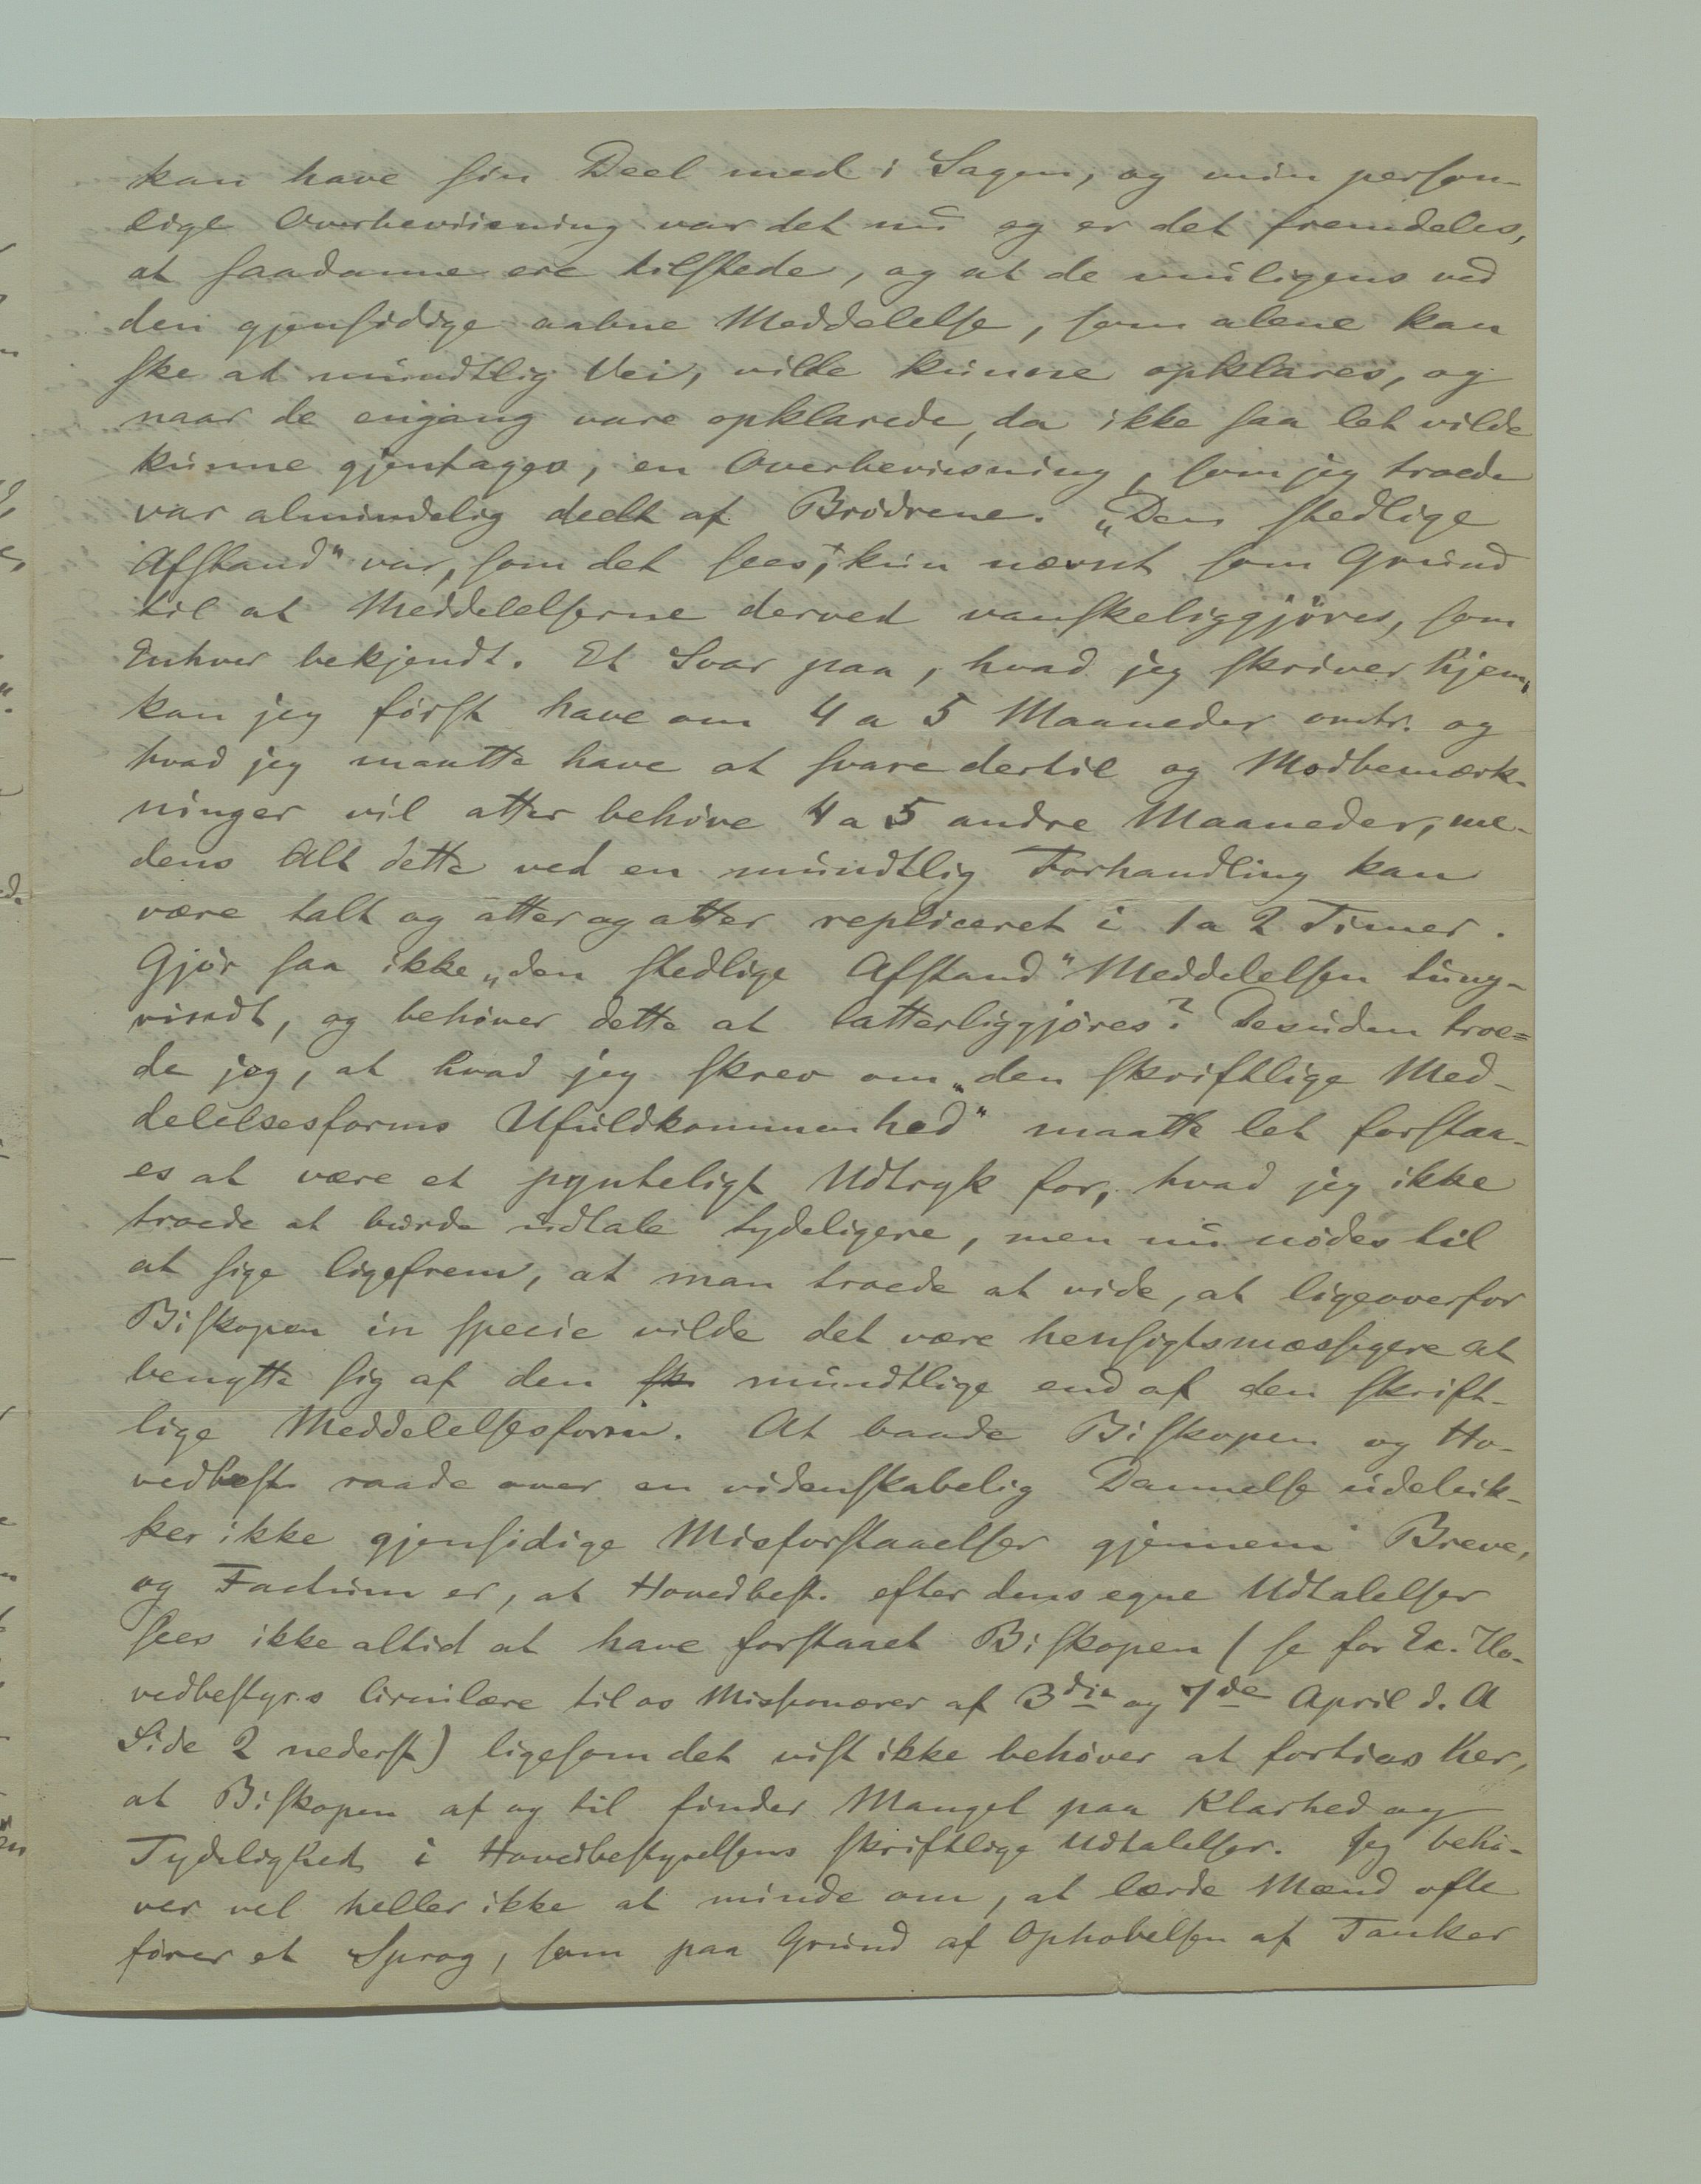 kan have sin Deel med i Sagen, og min person-
lige Overbeviisning var det nu og er det fremdeles,
at saadanne ere tilstede, og at de muligens ved
den gjensidige aabne Meddelelse, som alene kan
ske ad mundtlig Vei, vilde kunne opklares, og
naar de engang vare opklarede, da ikke saa let vilde
kunne gjentages, en Overbeviisning, som jeg troede
var almindelig deelt af Brødrene. „Den stedlige
Afstand" var, som det sees, kun nævnt som Grund
til at Meddelelserne derved vanskeliggjøres, som
Enhver bekjendt. Et Svar paa, hvad jeg skriver hjem,
kan jeg først have om 4 a 5 Maaneder omtr. og
hvad jeg maatte have at svare dertil og Modbemærk-
ninger vil atter behøve 4 a 5 andre Maaneder, me-
dens Alt dette ved en mundtlig Forhandling kan
være talt og atter og atter repliceret i 1 a 2 Timer.
Gjør saa ikke „den stedlige Afstand" Meddelelsen tung-
vindt, og behøver dette at latterliggjøres? Desuden troe=
de jeg, at hvad jeg skrev om „den skriftlige Med-
delelsesforms Ufuldkommenhed" maatte let forstaa-
es at være et pynteligt Udtryk for, hvad jeg ikke
troede at burde udtale tydeligere, men nu nødes til
at sige ligefrem, at man troede at vide, at ligeoverfor
Biskopen in specie vilde det være hensigtsmæssigere at
benytte sig af den sk mundtlige end af den skrift-
lige Meddelelsesform. At baade Biskopen og Ho-
vedbest. raade over en videnskabelig Dannelse udeluk-
ker ikke gjensidige Misforstaaelser gjennem Breve,
og Factum er, at Hovedbest. efter dens egne Udtalelser
sees ikke altid at have forstaaet Biskopen (se for Ex. Ho-
vedbestyr.s Circulære til os Missionærer af 3die og 7de April d. A
Side 2 nederst) ligesom det vist ikke behøver at forties her,
at Biskopen af og til finder Mangel paa Klarhed og
Tydelighed i Hovedbestyrelsens skriftlige Udtalelser. Jeg behø-
ver vel heller ikke at minde om, at lærde Mænd ofte
fører et Sprog, som paa Grund af Ophobelsen af Tanker